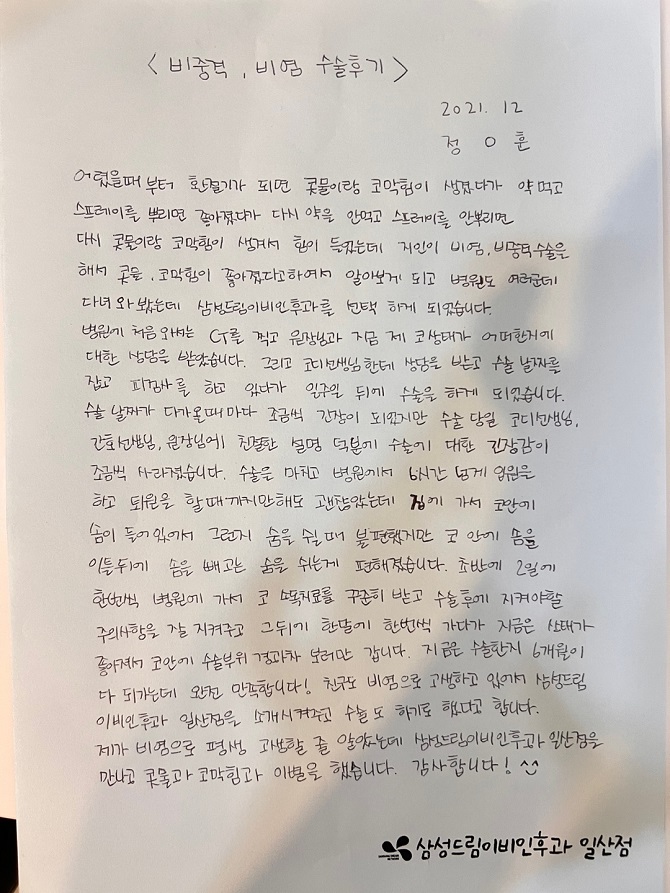 <비중격, 비염 수술후기>
2021. 12
정 O 훈
어렸을때 부터 환절기가 되면 콧물이랑 코막힘이 생겼다가 약 먹고
스프레이를 뿌리면 좋아졌다가 다시 약을 안먹고 스프레이를 안뿌리면
다시 콧물이랑 코막힘이 생겨서 힘이 들었는데 지인이 비염, 비중격수술을
해서 콧물, 코막힘이 좋아졌다고하여서 알아보게 되고 병원도 여러군데
다녀 와 봤는데 삼성드림이비인후과를 선택 하게 되었습니다.
병원에 처음 와서는 CT를 찍고 원장님과 지금 제 코상태가 어떠한지에
대한 상담을 받았습니다. 그리고 코디선생님한테 상담을 받고 수술 날짜를
잡고 피검사를 하고 있다가 일주일 뒤에 수술을 하게 되었습니다.
수술 날짜가 다가올때 마다 조금씩 긴장이 되었지만 수술 당일 코디선생님,
간호선생님, 원장님에 친절한 설명 덕분에 수술에 대한 긴장감이
조금씩 사라졌습니다. 수술을 마치고 병원에서 6시간 넘게 입원을
하고 퇴원을 할때 까지만해도 괜찮았는데 집에 가서 코안에
솜이 들어 있어서 그런지 숨을 쉴 때 불편했지만 코 안에 솜을
이틀뒤에 솜을 빼고는 숨을 쉬는게 편해졌습니다. 초반에 2일에
한번씩 병원에 가서 코 소독치료를 꾸준히 받고 수술후에 지켜야할
주의사항을 잘 지켜주고 그뒤에 한달에 한번씩 가다가 지금은 상태가
좋아져서 코안에 수술부위 경과차 보러만 갑니다. 지금은 수술한지 6개월이
다 되가는데 완전 만족합니다! 친구도 비염으로 고생하고 있어서 삼성드림
이비인후과 일산점을 소개시켜주고 수술도 하기로 했다고 합니다.
제가 비염으로 평생 고생할 줄 알았는데 삼성드림이비인후과 일산점을
만나고 콧물과 코막힘과 이별을 했습니다. 감사합니다!
삼성드림이비인후과 일산점